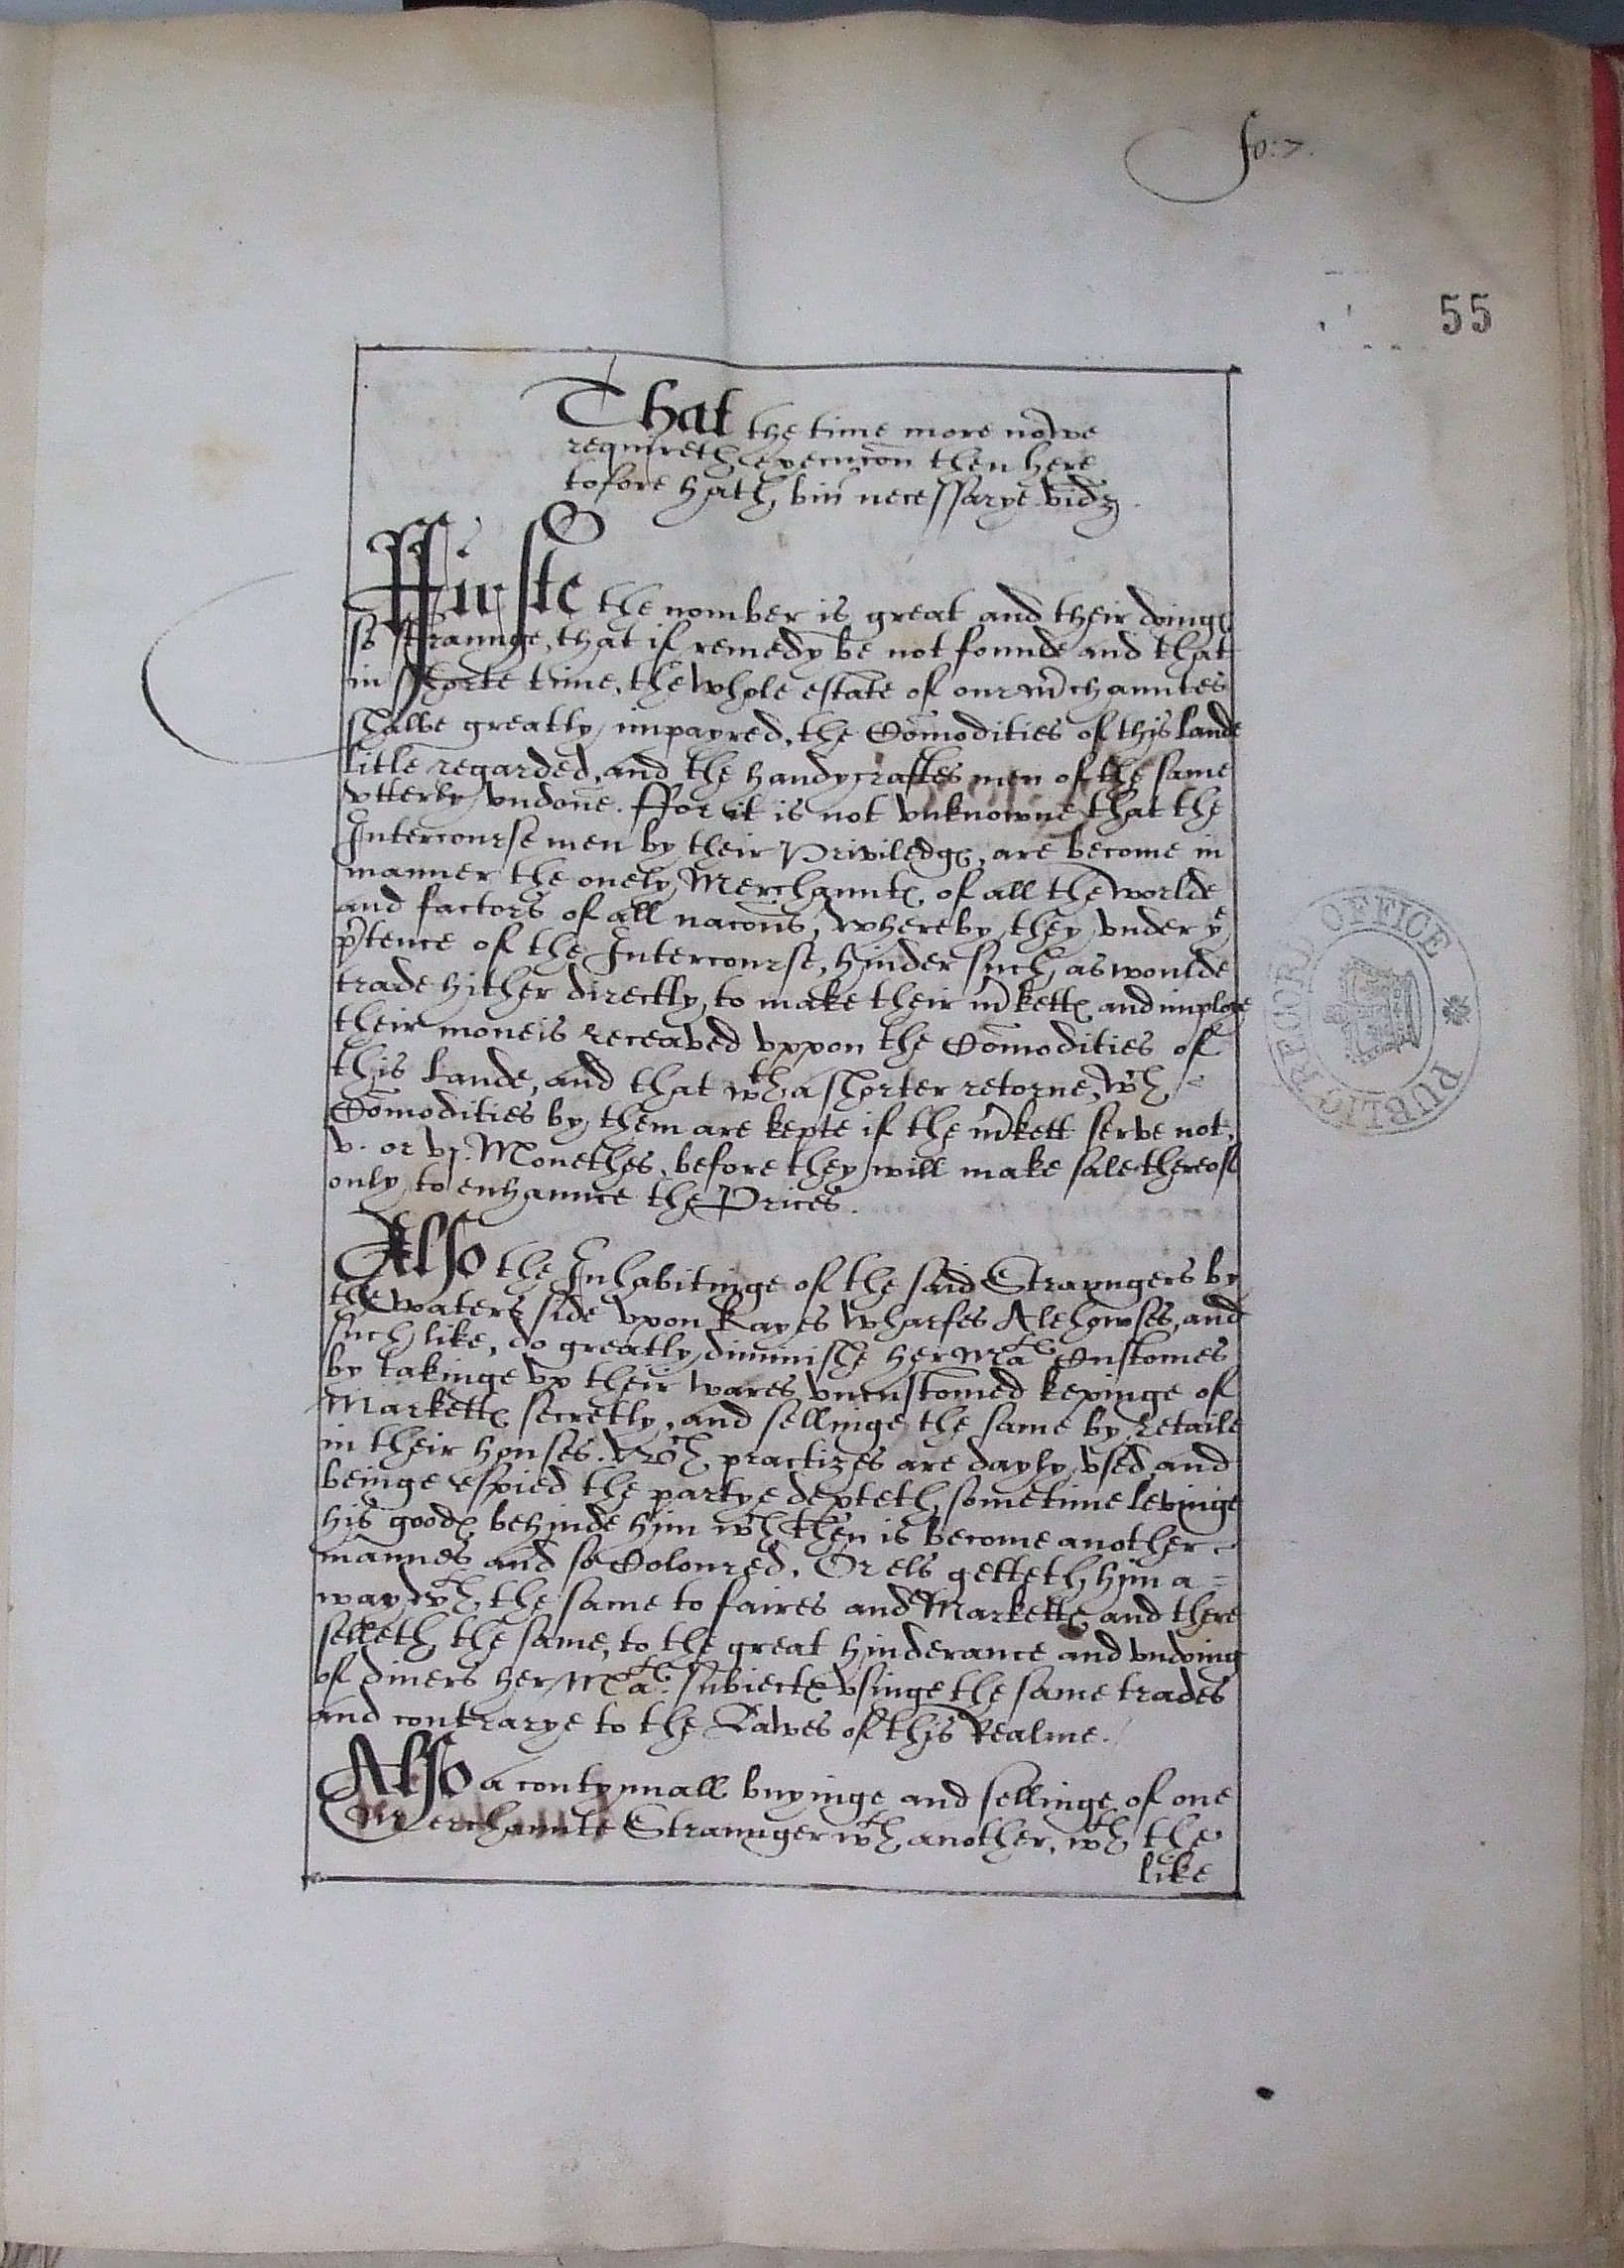 fo: 7.
55
That the time more nowe
requireth execucōn then here
tofore hath bin necessarye vidz.
Ffirste the nomber is great and their doinges
so straunge, that if remedy be not founde and that
in shorte time, the whole estate of our m̄chauntes
shalbe greatly impayred, the Com̄odities of this Lande
litle regarded, and the handycraftes men of the same
vtterly vndone. ffor it is not vnknowne that the
Intercourse men by their Priviledges, are become in
manner the onely Merchauntes of all the worlde
and factors of all nacōns, whereby they vnder ye
p̄tence of the Intercourse, hinder such as woulde
trade hither directly, to make their m̄kettes and imploye
their moneis receaved vppon the Com̄odities of
this Lande, and that wth a shorter retorne, wch
Com̄odities by them are kepte if the m̄kett serve not,
v. or vj. Monethes, before they will make sale thereof
only to enhaunce the Prices.
Also the Inhabitinge of the said Straungers by
the waters side vpon Kayes wharfes Alehowses, and
such like, do greatly diminishe her Mates Customes
by takinge vp their wares vncustomed kepinge of
Markettes secretly, and sellinge the same by retaile
in their houses. Wch practizes are dayly vsed, and
beinge espied the partye depteth sometime levinge
his goodes behinde him wch then is become another
mannes and so Coloured. Or els getteth him a=
way wth the same to faires and Markettes and there
selleth the same, to the great hinderance and vndoing
of diuers her Mates subiectes vsinge the same trades
and contrarye to the Lawes of this Realme.
Also a contynuall buyinge and sellinge of one
Merchaunte Straunger wth another, wth the
like
PUBLIC RECORD OFFICE